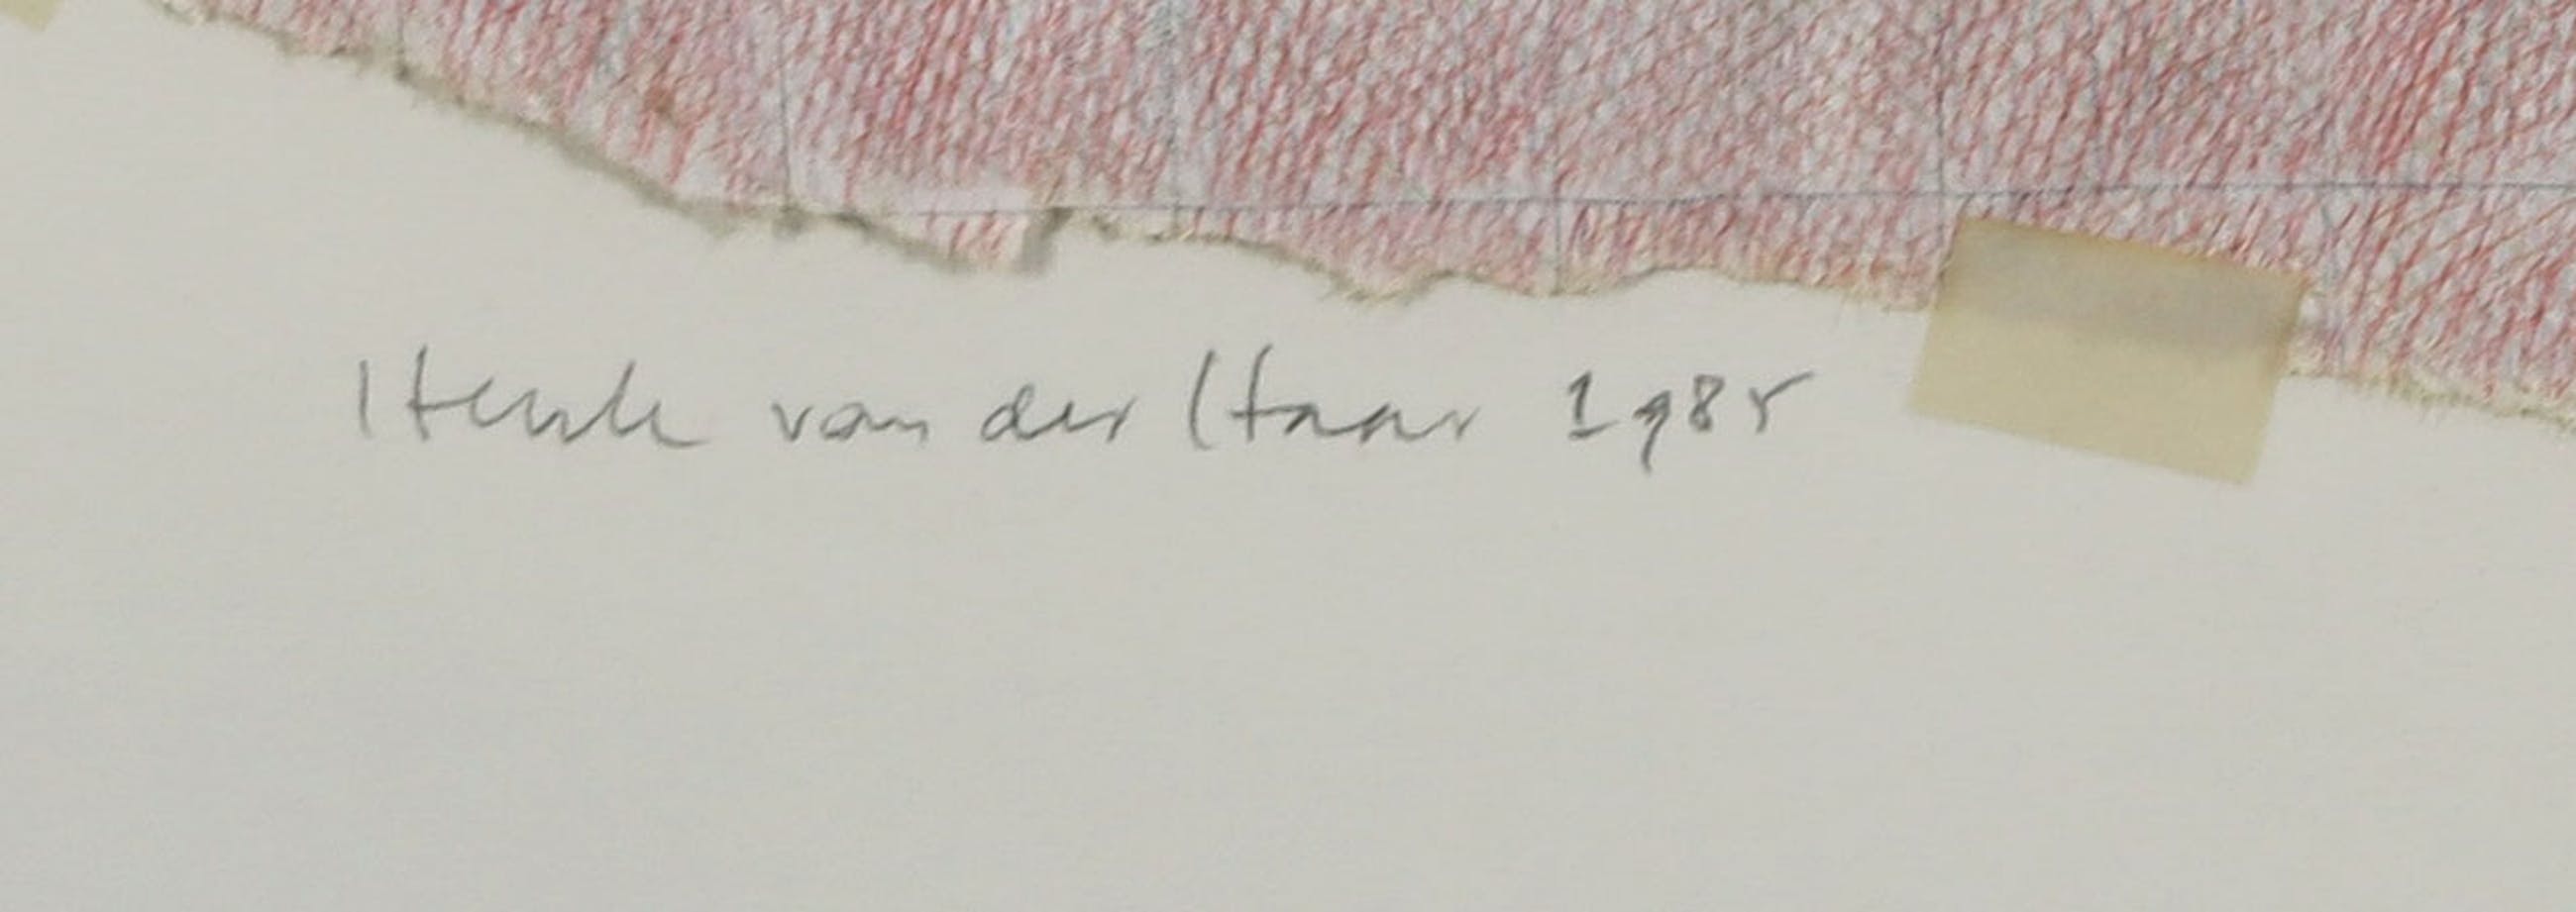 Henk van der Haar 1985